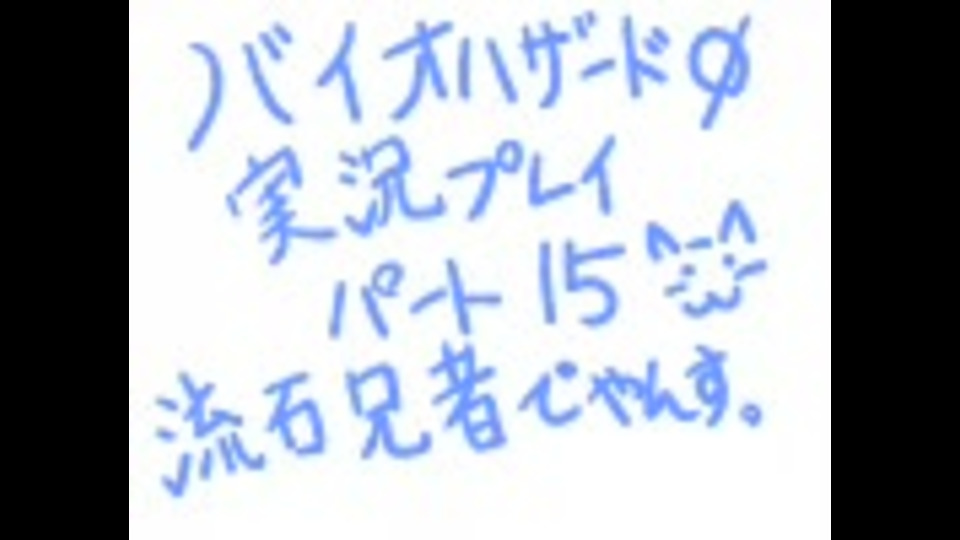 バイオハザード0
実況プレイ
パート15
流石兄者でやんす。